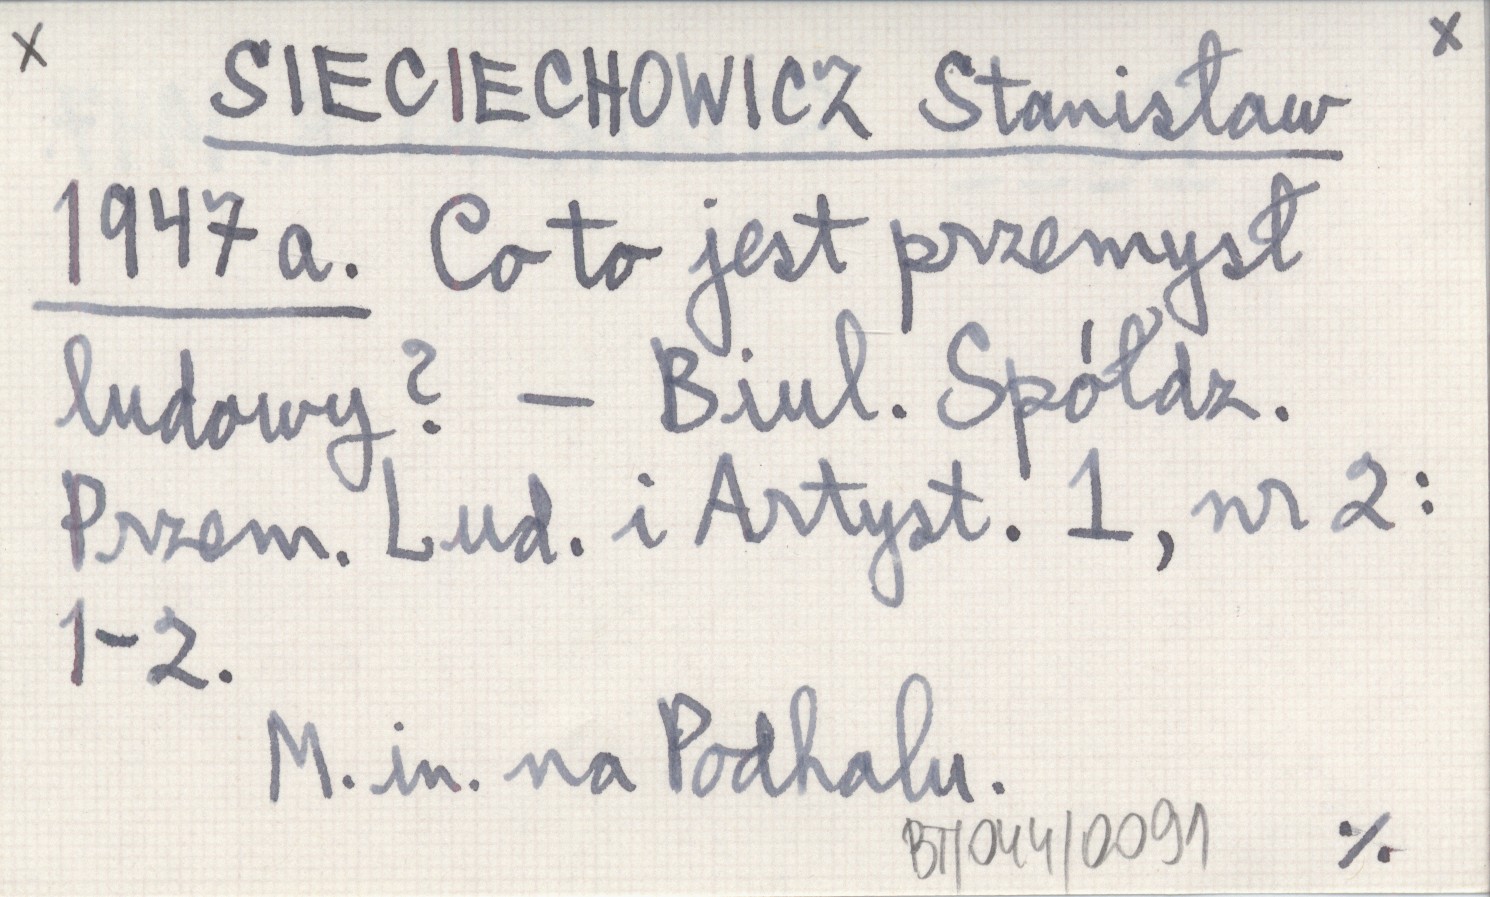 x SIECIECHOWICZ Stanisław x
1947a. Co to jest przemysł
ludowy? – Biul. Spółdz.
Przem. Lud. i Artyst. 1, nr 2:
1-2.
M. in. na Podhalu.
BT/044/0091 ./.